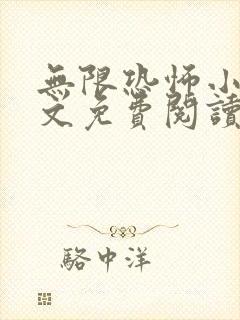 無限恐怖小
文免費閱讀
駱中洋